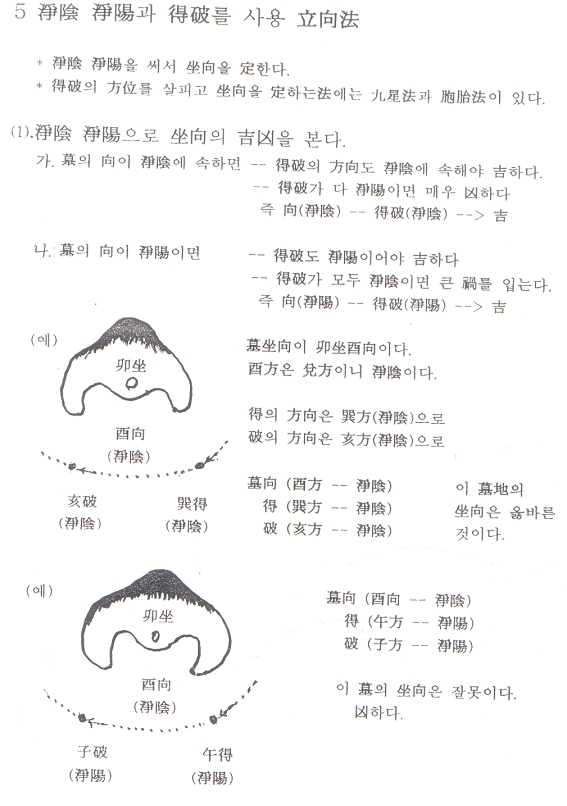 5 淨陰 淨陽과 得破를 사용 立向法
* 淨陰 淨陽을 써서 坐向을 定한다.
* 得破의 方位를 살피고 坐向을 定하는法에는 九星法과 胞胎法이 있다.
(1).淨陰 淨陽으로 坐向의 吉凶을 본다.
가. 墓의 向이 淨陰에 속하면 -- 得破의 方向도 淨陰에 속해야 吉하다.
-- 得破가 다 淨陽이면 매우 凶하다
즉 向(淨陰) -- 得破(淨陰) --> 吉
나. 墓의 向이 淨陽이면 -- 得破도 淨陽이어야 吉하다
-- 得破가 모두 淨陰이면 큰 禍를 입는다.
즉 向(淨陽) -- 得破(淨陽) --> 吉
(예)
卯坐
酉向
(淨陰)
亥破 巽得
(淨陰) (淨陰)
墓坐向이 卯坐酉向이다.
酉方은 兌方이니 淨陰이다.
得의 方向은 巽方(淨陰)으로
破의 方向은 亥方(淨陰)으로
墓向 (酉方 -- 淨陰) 이 墓地의
得 (巽方 -- 淨陰) 坐向은 옳바른
破 (亥方 -- 淨陰) 것이다.
(예)
卯坐
酉向
(淨陰)
子破 午得
(淨陽) (淨陽)
墓向 (酉向 -- 淨陰)
得 (午方 -- 淨陽)
破 (子方 -- 淨陽)
이 墓의 坐向은 잘못이다.
凶하다.